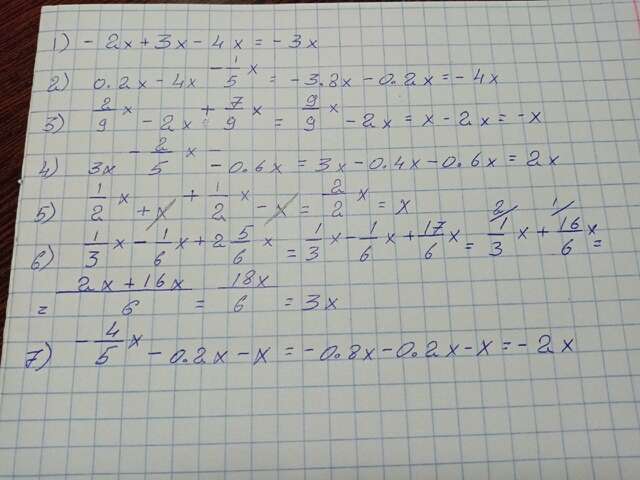 1) - 2x + 3x - 4x = - 3x
2) 0.2x - 4x - 1/5 x = - 3.8x - 0.2x = - 4x
3) 2/9 x - 2x + 7/9 x = 9/9 x - 2x = x - 2x = - x
4) 3x - 2/5 x - 0.6x = 3x - 0.4x - 0.6x = 2x
5) 1/2 x + x + 1/2 x - x = 2/2 x = x
6) 1/3 x - 1/6 x + 2 5/6 x = 1/3 x - 1/6 x + 17/6 x = 2/ 1/3 x + 1/ 16/6 x =
= 2x + 16x / 6 = 18x / 6 = 3x
7) - 4/5 x - 0.2x - x = - 0.8x - 0.2x - x = - 2x